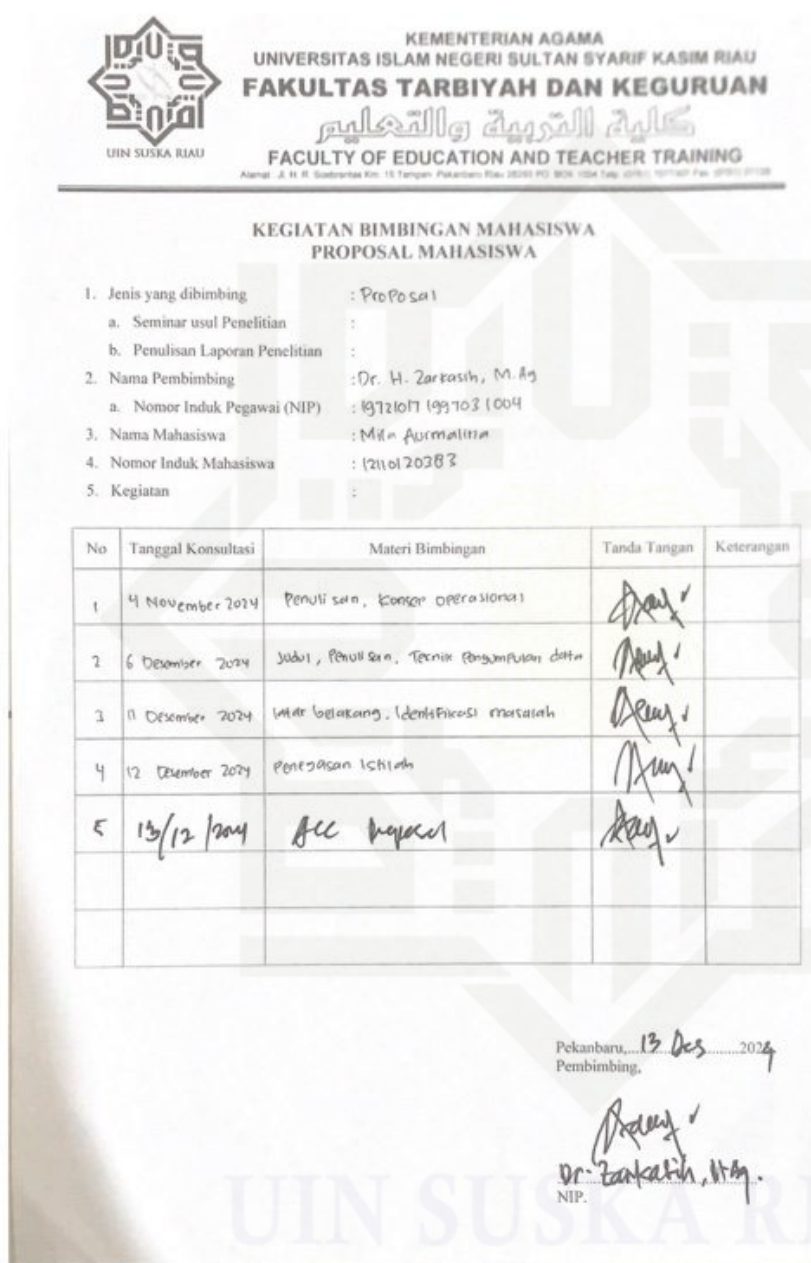 UIN SUSKA RIAU
KEMENTERIAN AGAMA
UNIVERSITAS ISLAM NEGERI SULTAN SYARIF KASIM RIAU
FAKULTAS TARBIYAH DAN KEGURUAN
كلية التربية والتعليم
FACULTY OF EDUCATION AND TEACHER TRAINING
Alamat : Jl. H. R. Soebrantas Km. 15 Tampan Pekanbaru Riau 28293 PO. BOX 1004 Telp.
KEGIATAN BIMBINGAN MAHASISWA
PROPOSAL MAHASISWA
1. Jenis yang dibimbing : Proposal
a. Seminar usul Penelitian :
b. Penulisan Laporan Penelitian :
2. Nama Pembimbing : Dr. H. Zarkasih, M.Ag
a. Nomor Induk Pegawai (NIP) : 19721017 199703 1 004
3. Nama Mahasiswa : Mila Aurmalina
4. Nomor Induk Mahasiswa : 12110120383
5. Kegiatan :
No Tanggal Konsultasi Materi Bimbingan Tanda Tangan Keterangan
1 4 November 2024 Penulisan, Konsep operasional
2 6 Desember 2024 Judul, Penulisan, Teknik Pengumpulan data
3 11 Desember 2024 latar belakang, Identifikasi masalah
4 12 Desember 2024 Penegasan Istilah
5 13/12/2024 Acc Proposal
Pekanbaru, 13 Des 2024
Pembimbing,
Dr. Zarkasih, M.Ag.
NIP.
UIN SUSKA RI